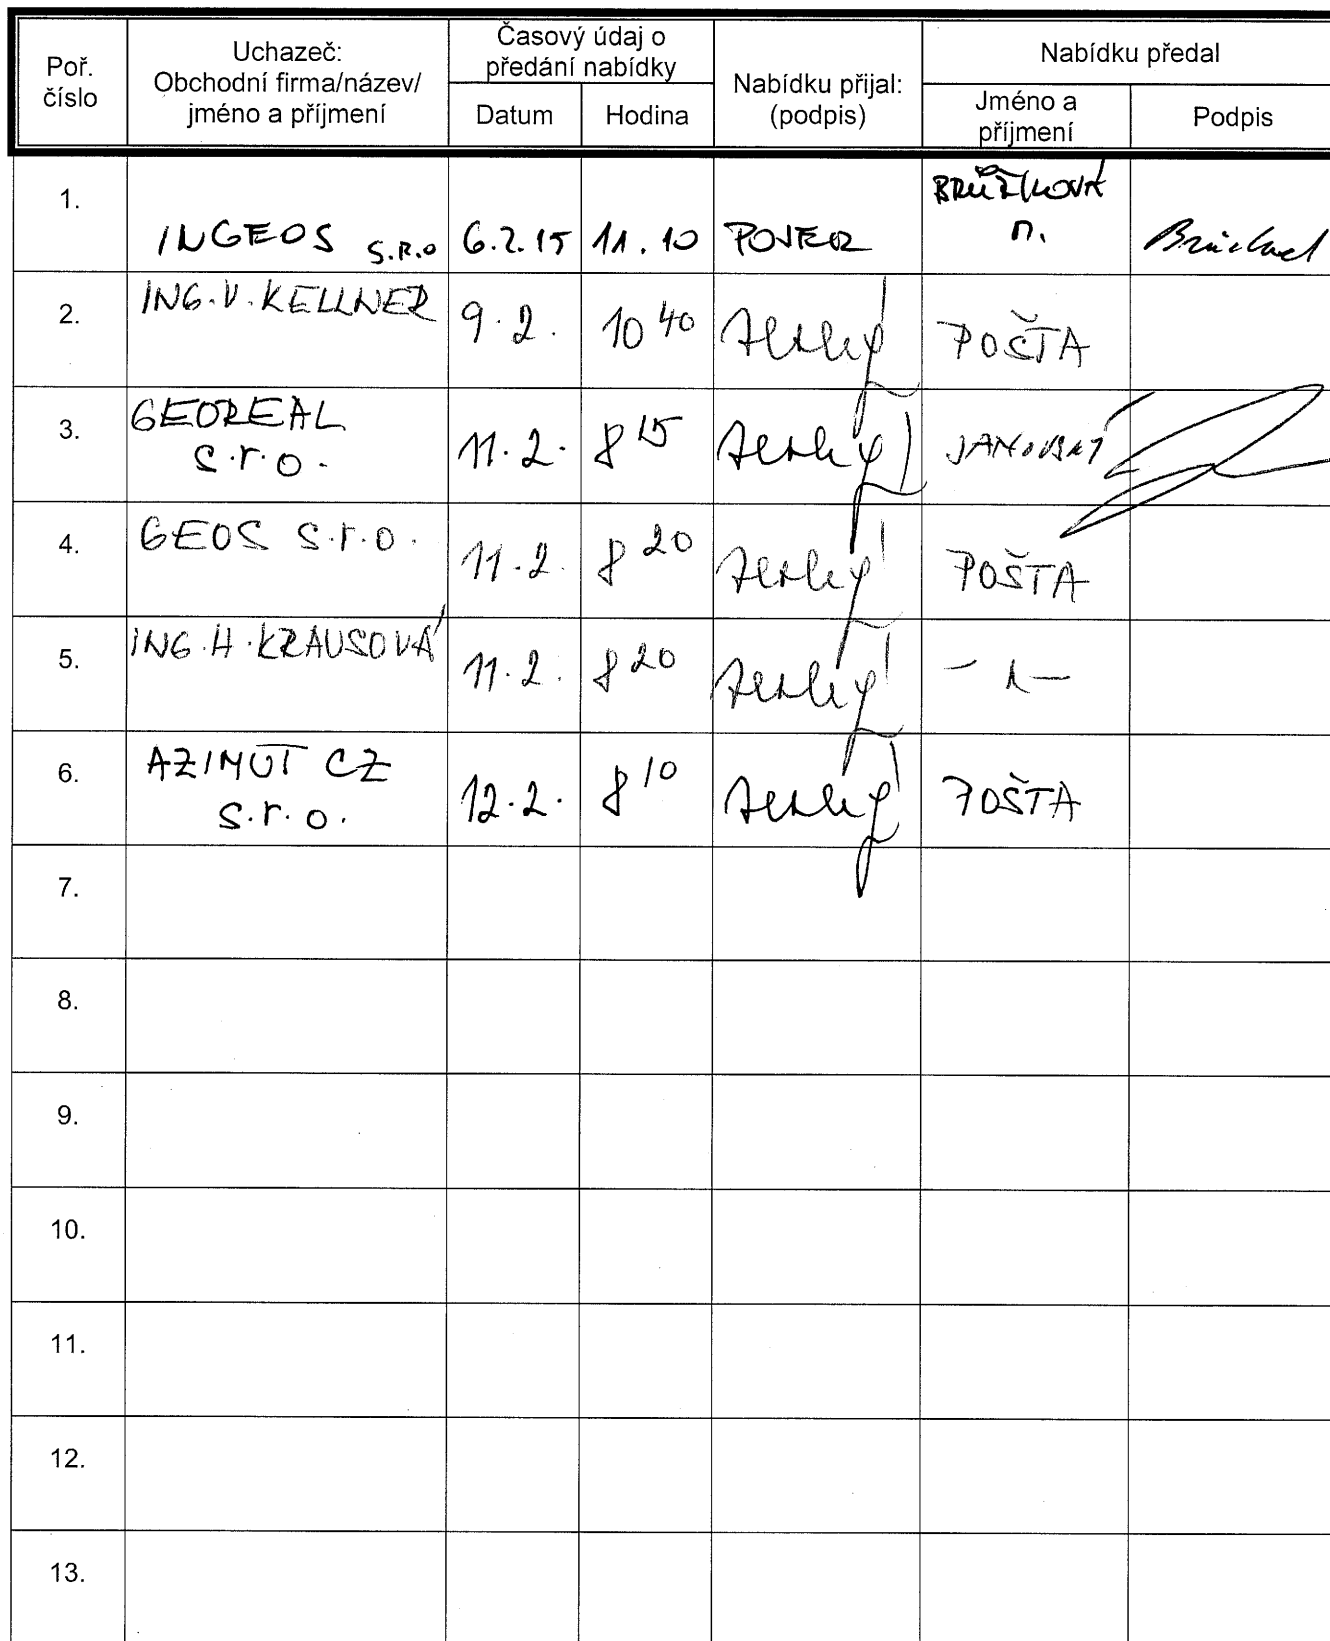 Poř. číslo
Uchazeč:
Obchodní firma/název/
jméno a příjmení
Časový údaj o
předání nabídky
Datum
Hodina
Nabídku přijal:
(podpis)
Nabídku předal
Jméno a
příjmení
Podpis
1. INGEOS s.r.o 6.2.15 11.10
2. ING. V. KELLNER 9.2. 10 40 POŠTA
3. GEOREAL
s.r.o. 11.2. 8 15 JANOVSKÝ
4. GEOS s.r.o. 11.2. 8 20 POŠTA
5. ING. H. KRAUSOVÁ 11.2. 8 20
6. AZIMUT CZ
s.r.o. 12.2. 8 10 POŠTA
7.
8.
9.
10.
11.
12.
13.